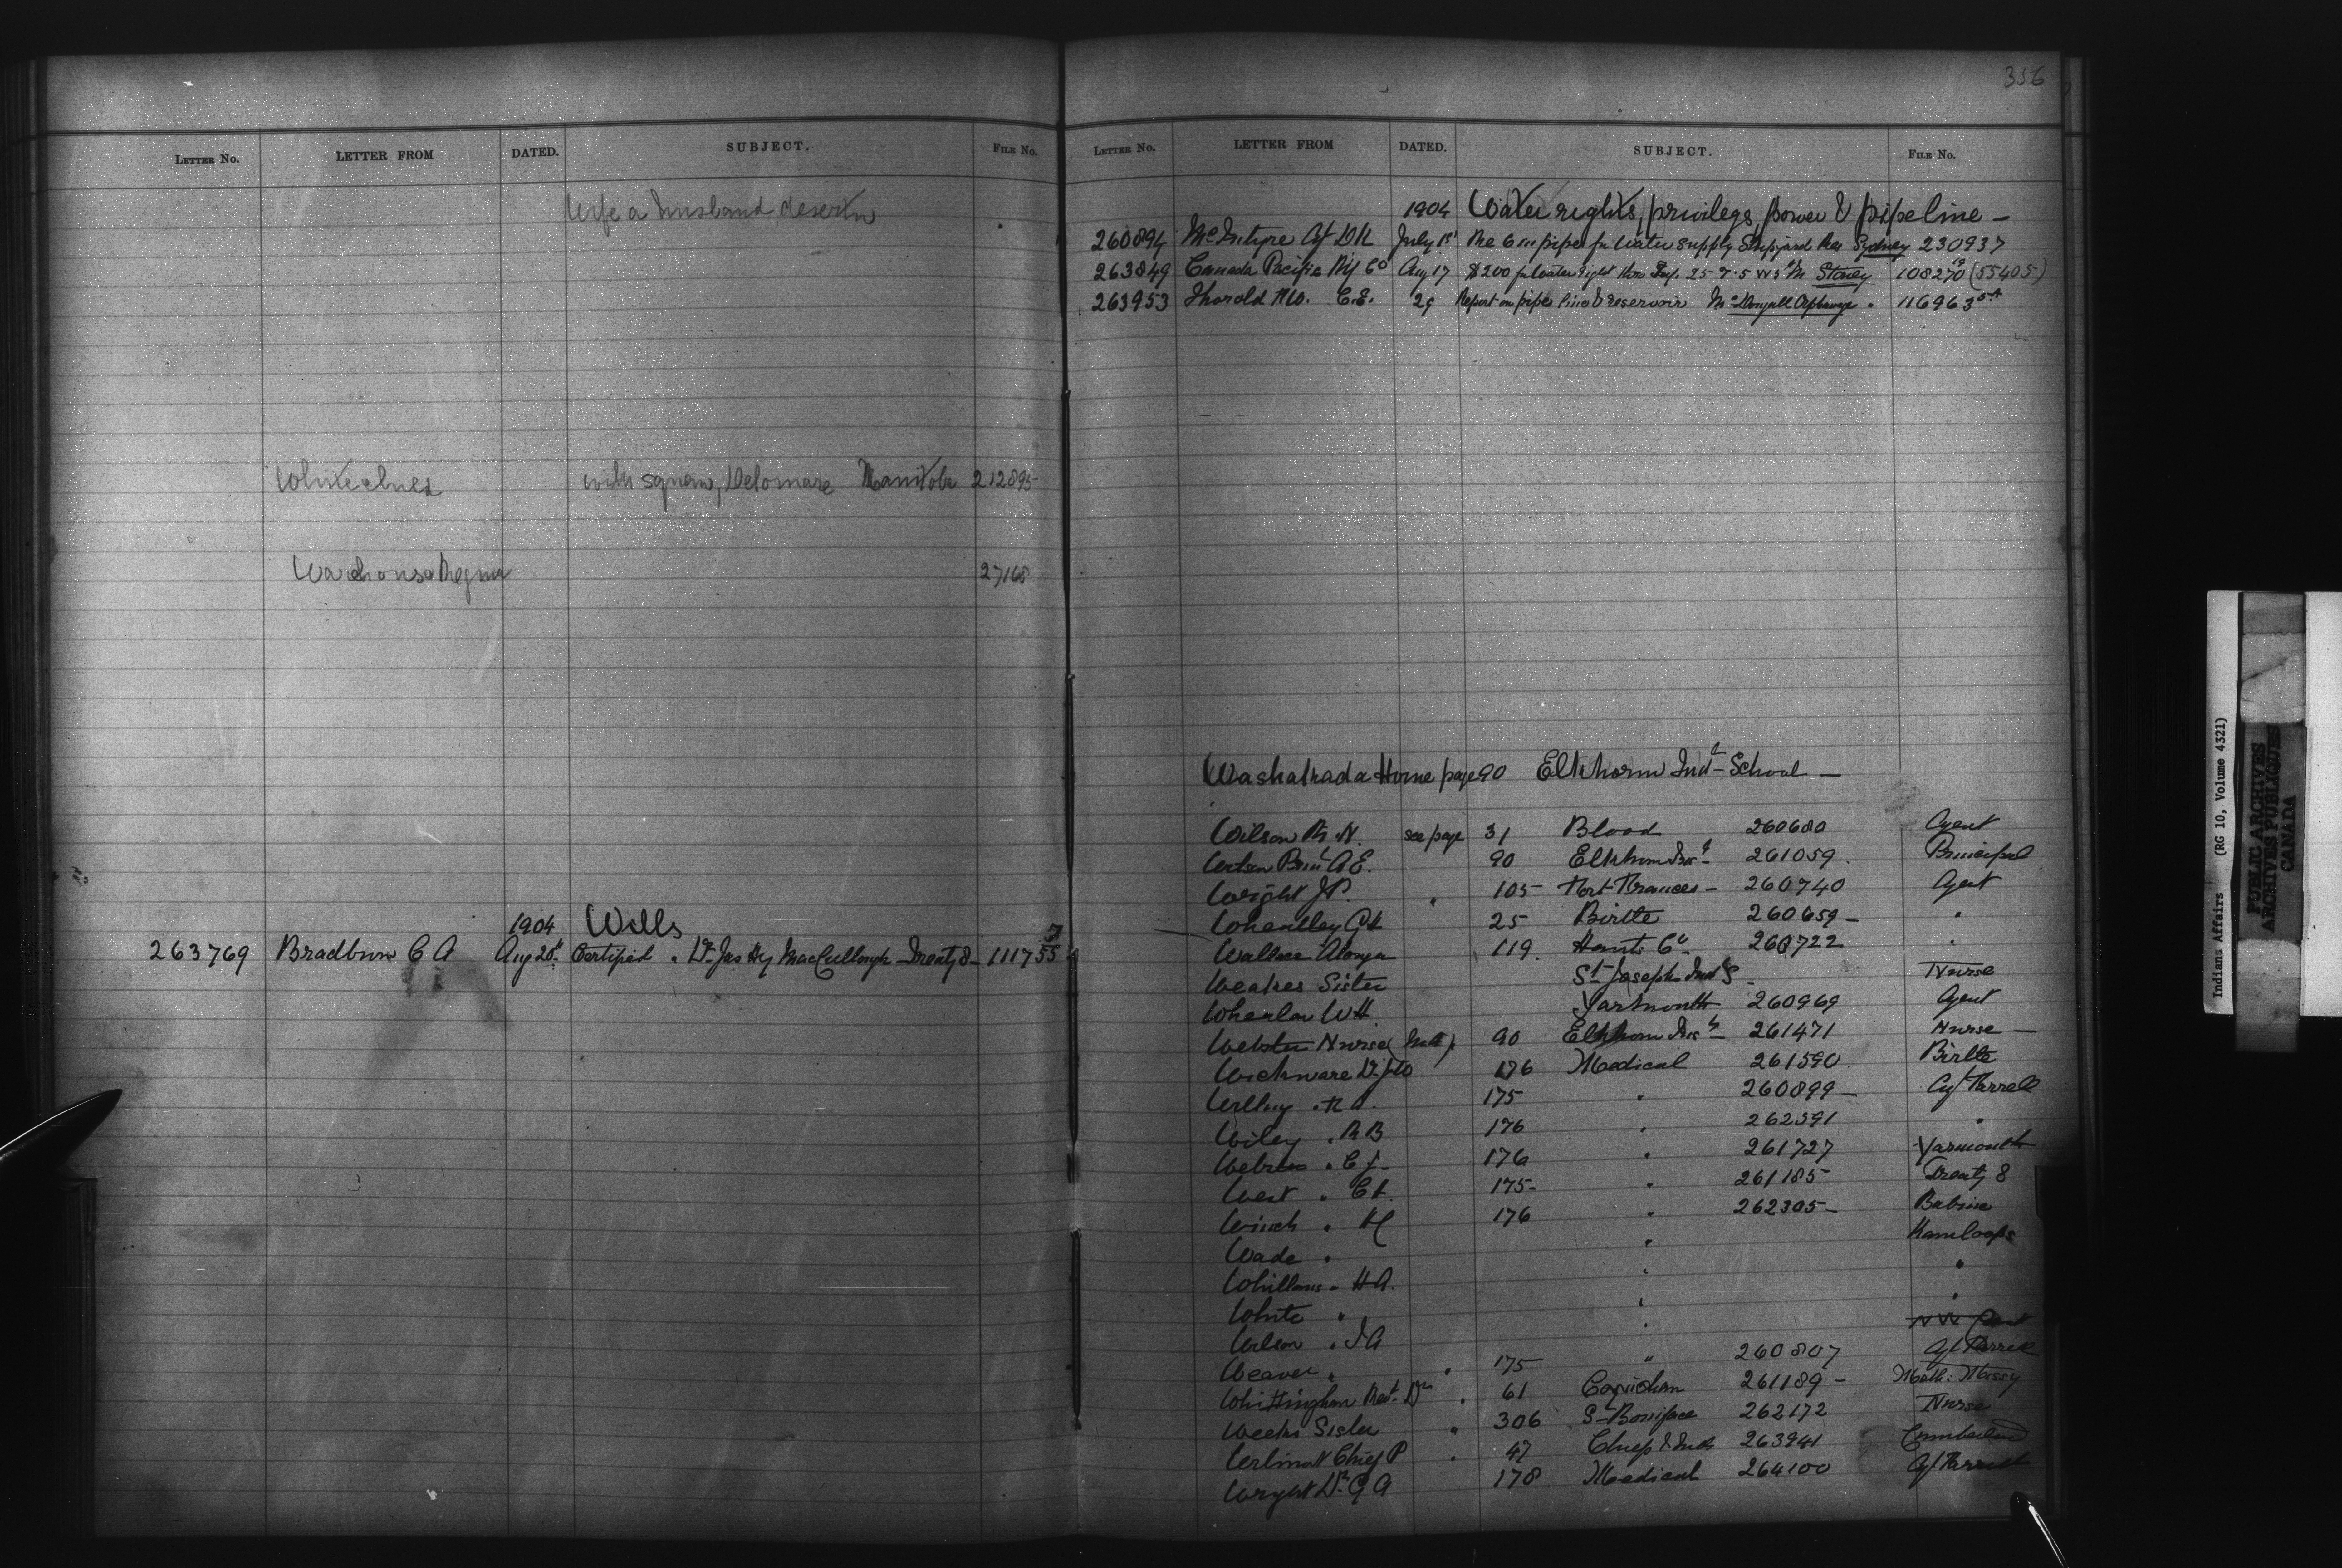 LETTER NO. LETTER FROM DATED. SUBJECT. FILE NO.
Wife a husband desertn
White chief with squaw, Delomare Manitoba 212895
Warehouse Regina 27168
1904 Wills
263769 Bradburn C A Aug 20 Certified " Dr Jas Hy MacCullough Treaty 8 111755
356
LETTER NO. LETTER FROM DATED. SUBJECT. FILE NO.
1904 Water rights, privilegs, power & pipe line
260894 McIntyre Agt D K July 15 Re 6 in pipe for water supply Shipyard Res Sydney 230937
263849 Canada Pacific Ry Co Aug 17 $200 for Water right thro 25 7 5 W 5th M Stoney 108270 (55405)
263953 Thorold C.E. 29 Report on pipe line & reservoir McDougall Orphanage " 116963
Washakada Home page 90 Elkhorn Indl School
Wilson R. N. see page 31 Blood 260680 Agent
Wilson Prinl A E. 90 Elkhorn 261059 Principal
Wright J P. " 105 Fort Frances 260740 Agent
Wheatley G H 25 Birtle 260659 "
Wallace Alonzo 119 Hants Co 260722 "
Weakes Sister St Josephs Indl S Nurse
Whealen W H. Yarmouth 260969 Agent
Webster Nurse 90 Elkhorn 261471 Nurse
Wickware Dr 176 Medical 261590 Birtle
" 175 " 260899 Agt Tyrrell
Wiley " R B 176 " 262591 "
" C J 176 " 261727 Yarmouth
West " C L. 175 " 261185 Treaty 8
Winch " H 176 " 262305 Babine
Wade " " Kamloops
Whillans " H A. " "
White " " "
Wilson " J A "
Weaver " " 175 " 260807 Agt
Whittington Revd Dr " 61 Cowichan 261189 Meth. Missy
Weeks Sister " 306 St Boniface 262172 Nurse
Chief P " 47 Chiefs & Inds 263941 Cumberland
Wright Dr G A 178 Medical 264100 Agt
Indians Affairs (RG 10, Volume 4321)
PUBLIC ARCHIVES
ARCHIVES PUBLIQUES
CANADA